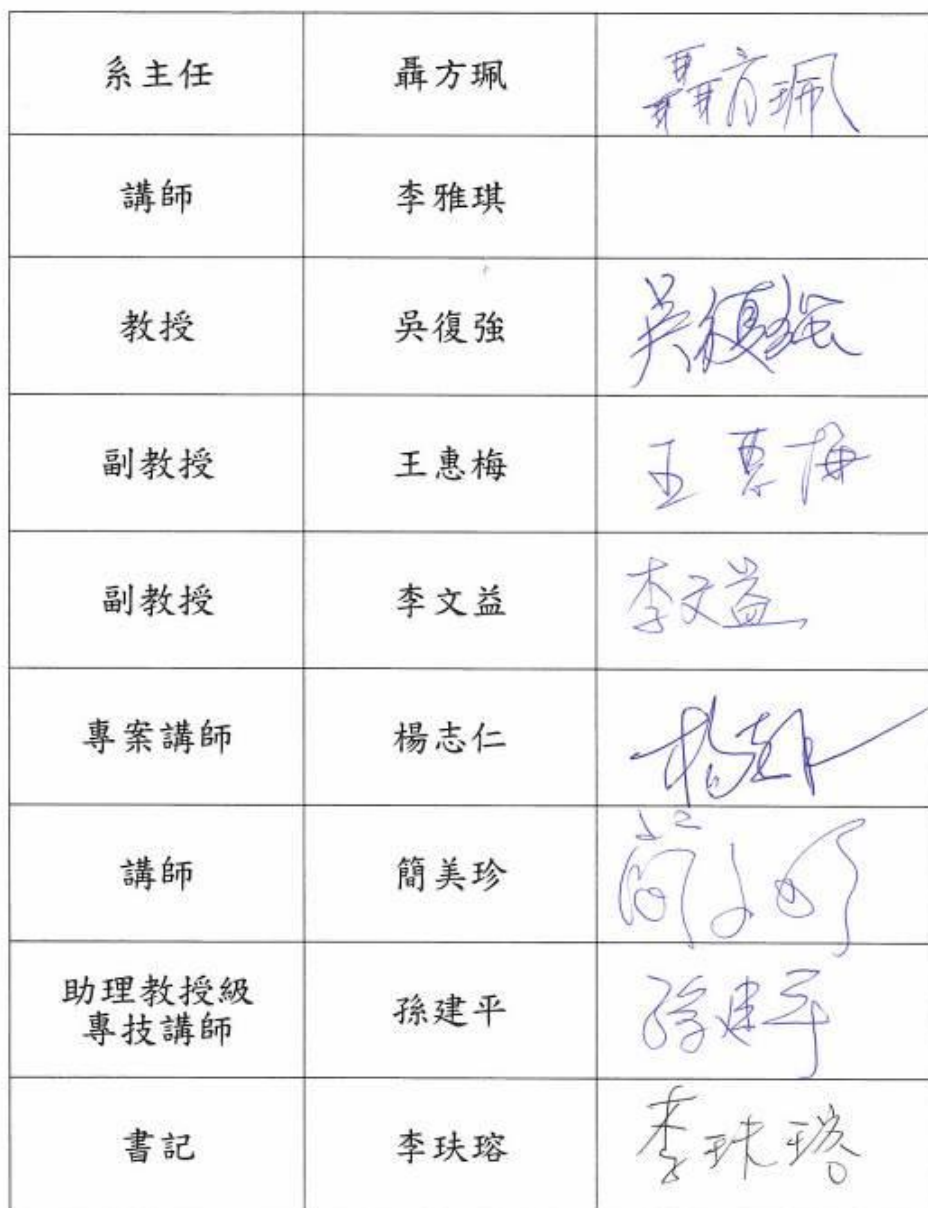 系主任 聶方珮 聶方珮
講師 李雅琪
教授 吳復強 吳復強
副教授 王惠梅 王惠梅
副教授 李文益 李文益
專案講師 楊志仁 楊志仁
講師 簡美珍
助理教授級
專技講師 孫建平 孫建平
書記 李玞瑢 李玞瑢